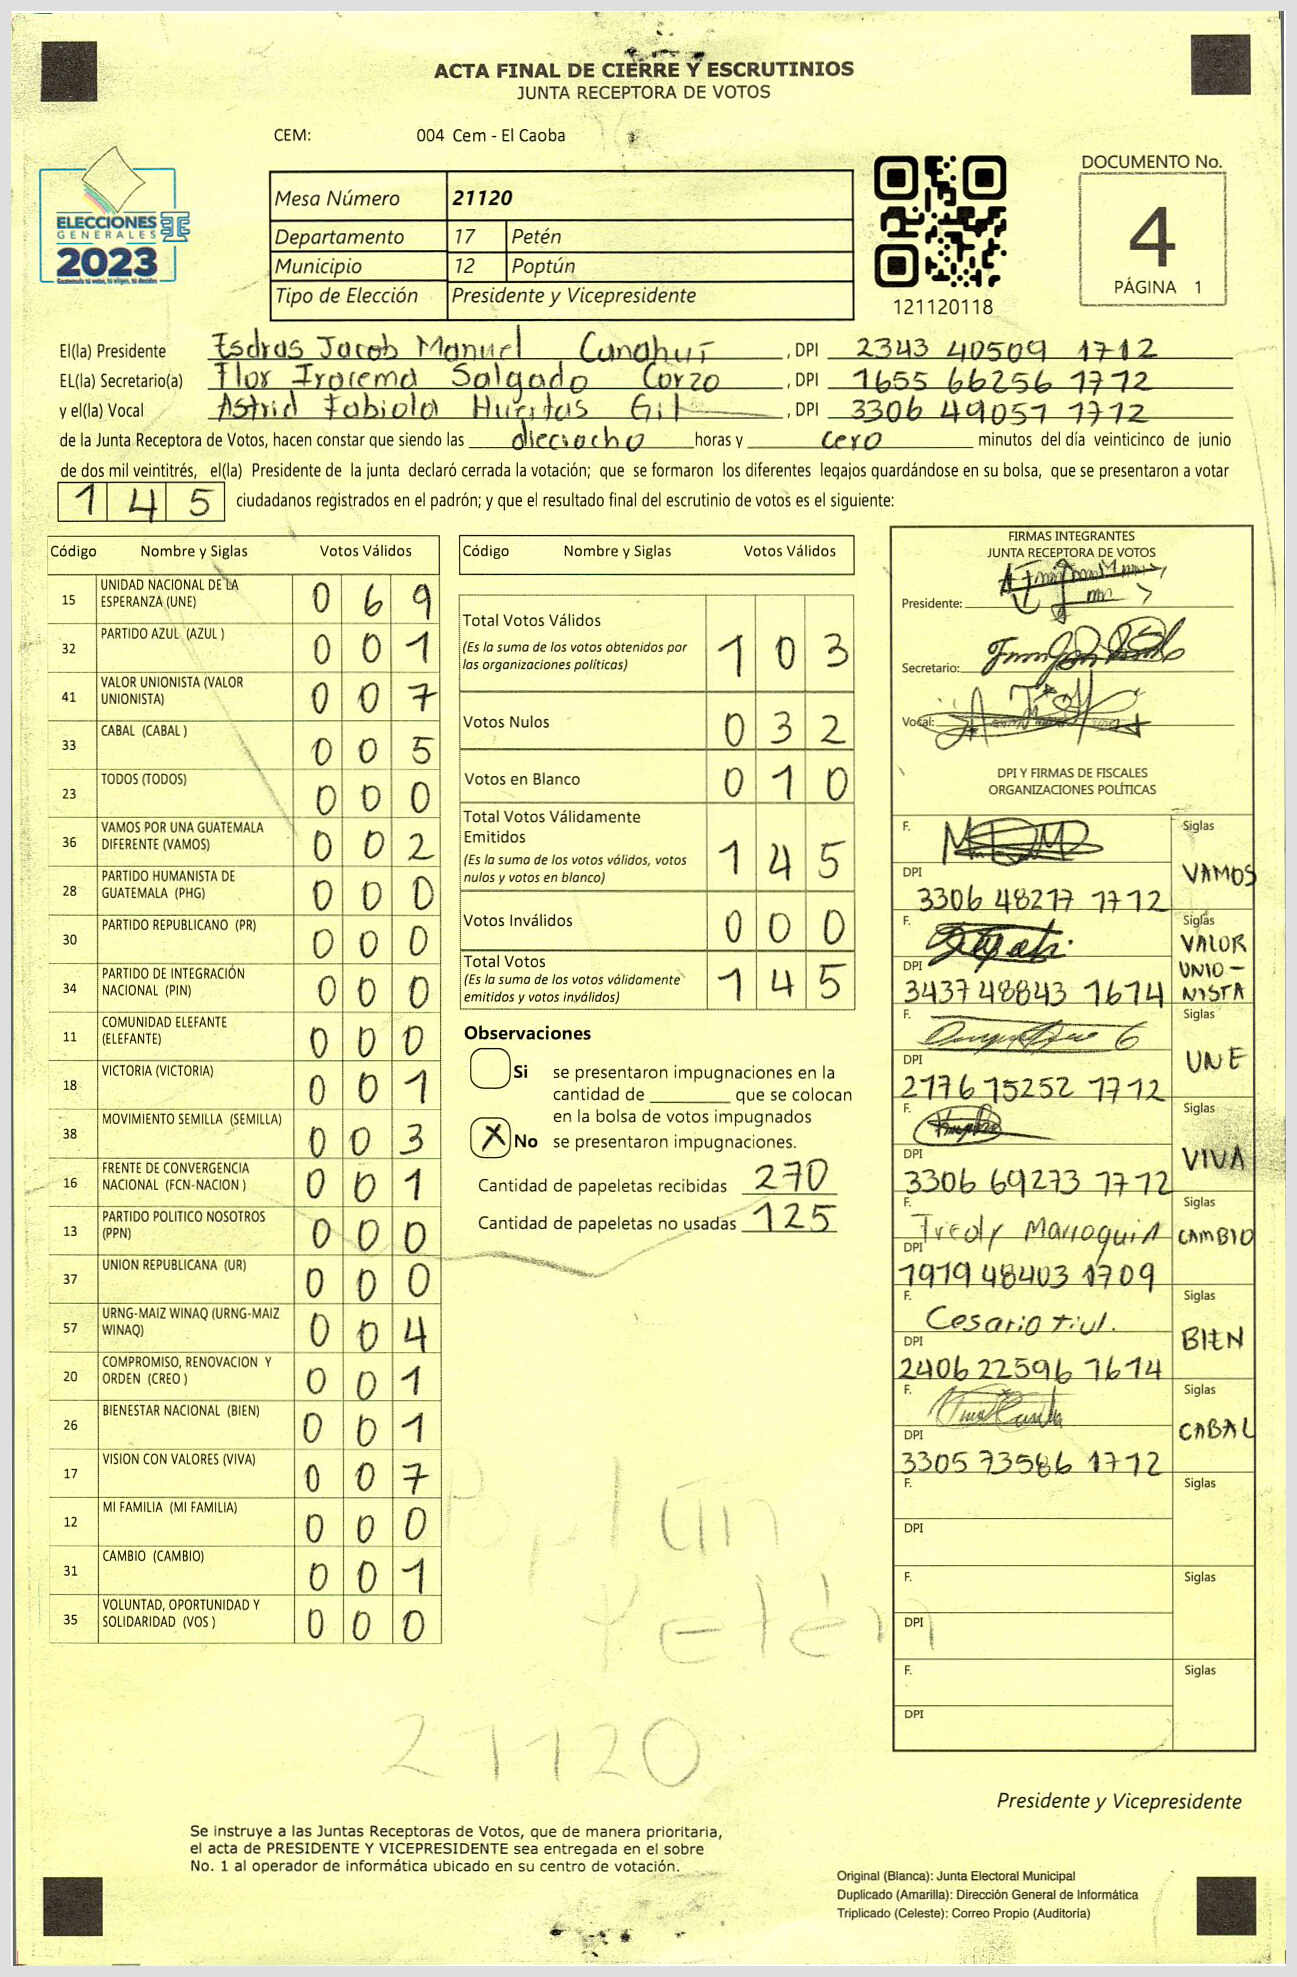 ACTA FINAL DE CIERRE Y ESCRUTINIOS
JUNTA RECEPTORA DE VOTOS
CEM: 004 Cem - El Caoba
ELECCIONES
GENERALES
2023
Mesa Número 21120
Departamento 17 Petén
Municipio 12 Poptún
Tipo de Elección Presidente y Vicepresidente
121120118
DOCUMENTO No.
4
PÁGINA 1
El(la) Presidente Esdras Jacob Manuel Cunahuí, DPI 2343 40509 1712
EL(la) Secretario(a) Flor Iracema Salgado Corzo, DPI 1655 66256 1712
y el(la) Vocal Astrid Fabiola Huertas Gil, DPI 3306 49051 1712
de la Junta Receptora de Votos, hacen constar que siendo las dieciocho horas y cero minutos del día veinticinco de junio
de dos mil veintitrés, el(la) Presidente de la junta declaró cerrada la votación; que se formaron los diferentes legajos quardándose en su bolsa, que se presentaron a votar
145 ciudadanos registrados en el padrón; y que el resultado final del escrutinio de votos es el siguiente:
Código Nombre y Siglas Votos Válidos
15 UNIDAD NACIONAL DE LA ESPERANZA (UNE) 0 6 9
32 PARTIDO AZUL (AZUL ) 0 0 1
41 VALOR UNIONISTA (VALOR UNIONISTA) 0 0 7
33 CABAL (CABAL ) 0 0 5
23 TODOS (TODOS) 0 0 0
36 VAMOS POR UNA GUATEMALA DIFERENTE (VAMOS) 0 0 2
28 PARTIDO HUMANISTA DE GUATEMALA (PHG) 0 0 0
30 PARTIDO REPUBLICANO (PR) 0 0 0
34 PARTIDO DE INTEGRACIÓN NACIONAL (PIN) 0 0 0
11 COMUNIDAD ELEFANTE (ELEFANTE) 0 0 0
18 VICTORIA (VICTORIA) 0 0 1
38 MOVIMIENTO SEMILLA (SEMILLA) 0 0 3
16 FRENTE DE CONVERGENCIA NACIONAL (FCN-NACION ) 0 0 1
13 PARTIDO POLITICO NOSOTROS (PPN) 0 0 0
37 UNION REPUBLICANA (UR) 0 0 0
57 URNG-MAIZ WINAQ (URNG-MAIZ WINAQ) 0 0 4
20 COMPROMISO, RENOVACION Y ORDEN (CREO ) 0 0 1
26 BIENESTAR NACIONAL (BIEN) 0 0 1
17 VISION CON VALORES (VIVA) 0 0 7
12 MI FAMILIA (MI FAMILIA) 0 0 0
31 CAMBIO (CAMBIO) 0 0 1
35 VOLUNTAD, OPORTUNIDAD Y SOLIDARIDAD (VOS ) 0 0 0
Código Nombre y Siglas Votos Válidos
Total Votos Válidos 1 0 3
(Es la suma de los votos obtenidos por
las organizaciones políticas)
Votos Nulos 0 3 2
Votos en Blanco 0 1 0
Total Votos Válidamente
Emitidos 1 4 5
(Es la suma de los votos válidos, votos
nulos y votos en blanco)
Votos Inválidos 0 0 0
Total Votos 1 4 5
(Es la suma de los votos válidamente
emitidos y votos inválidos)
Observaciones
Si se presentaron impugnaciones en la
cantidad de ________ que se colocan
en la bolsa de votos impugnados
X No se presentaron impugnaciones.
Cantidad de papeletas recibidas 270
Cantidad de papeletas no usadas 125
Poptún
Petén
21120
FIRMAS INTEGRANTES
JUNTA RECEPTORA DE VOTOS
Presidente:
Secretario:
Vocal:
DPI Y FIRMAS DE FISCALES
ORGANIZACIONES POLÍTICAS
F. Siglas
DPI VAMOS
3306 48217 1712
F. Siglas
DPI VALOR UNIO-NISTA
3437 48843 1614
F. Siglas
DPI UNE
2176 15252 1712
F. Siglas
DPI VIVA
3306 69273 1712
F. Fredy Marroquin Siglas
DPI CAMBIO
1919 48403 1709
F. Cesario tiul. Siglas
DPI BIEN
2406 22596 1614
F. Siglas
DPI CABAL
3305 73586 1712
F. Siglas
DPI
F. Siglas
DPI
F. Siglas
DPI
Presidente y Vicepresidente
Se instruye a las Juntas Receptoras de Votos, que de manera prioritaria,
el acta de PRESIDENTE Y VICEPRESIDENTE sea entregada en el sobre
No. 1 al operador de informática ubicado en su centro de votación.
Original (Blanca): Junta Electoral Municipal
Duplicado (Amarilla): Dirección General de Informática
Triplicado (Celeste): Correo Propio (Auditoría)